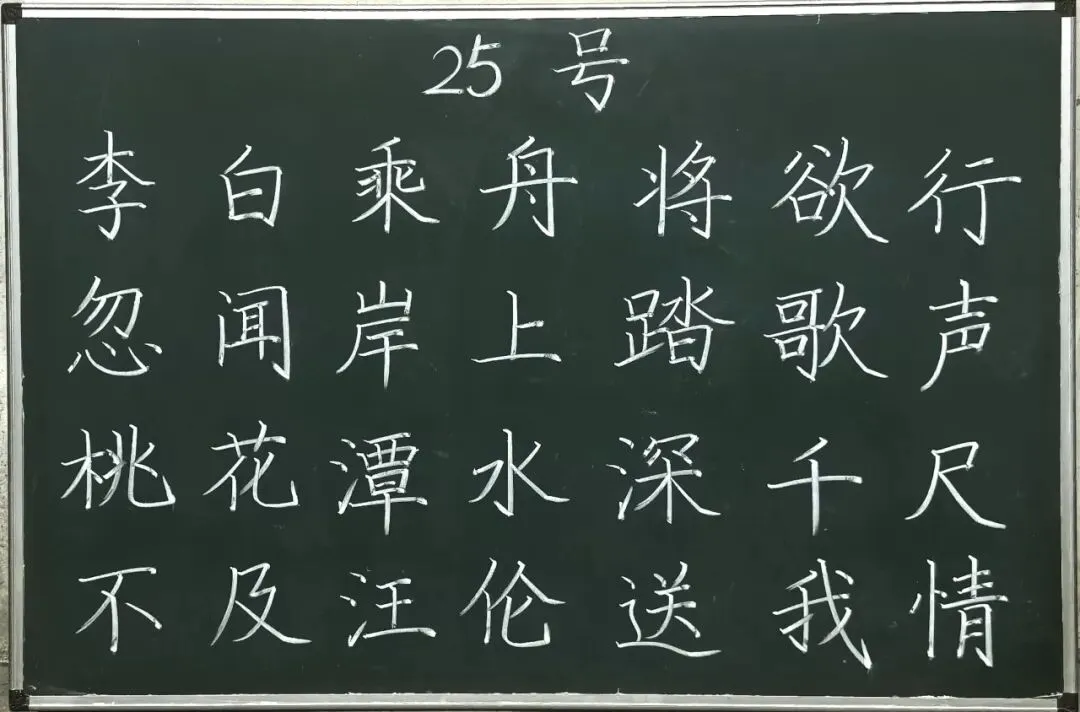 25 号
李白乘舟将欲行
忽闻岸上踏歌声
桃花潭水深千尺
不及汪伦送我情